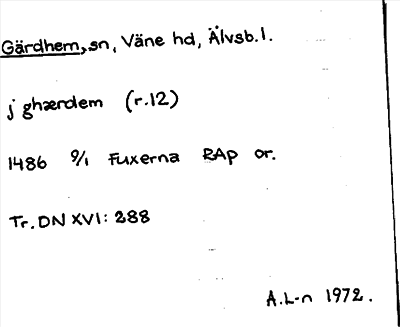 Gärdhem, sn, Väne hd, Älvsb. l.
j ghærdem (r.12)
1486 9/1 Fuxerna RAp or.
Tr. DN XVI: 288
A.L-n 1972.